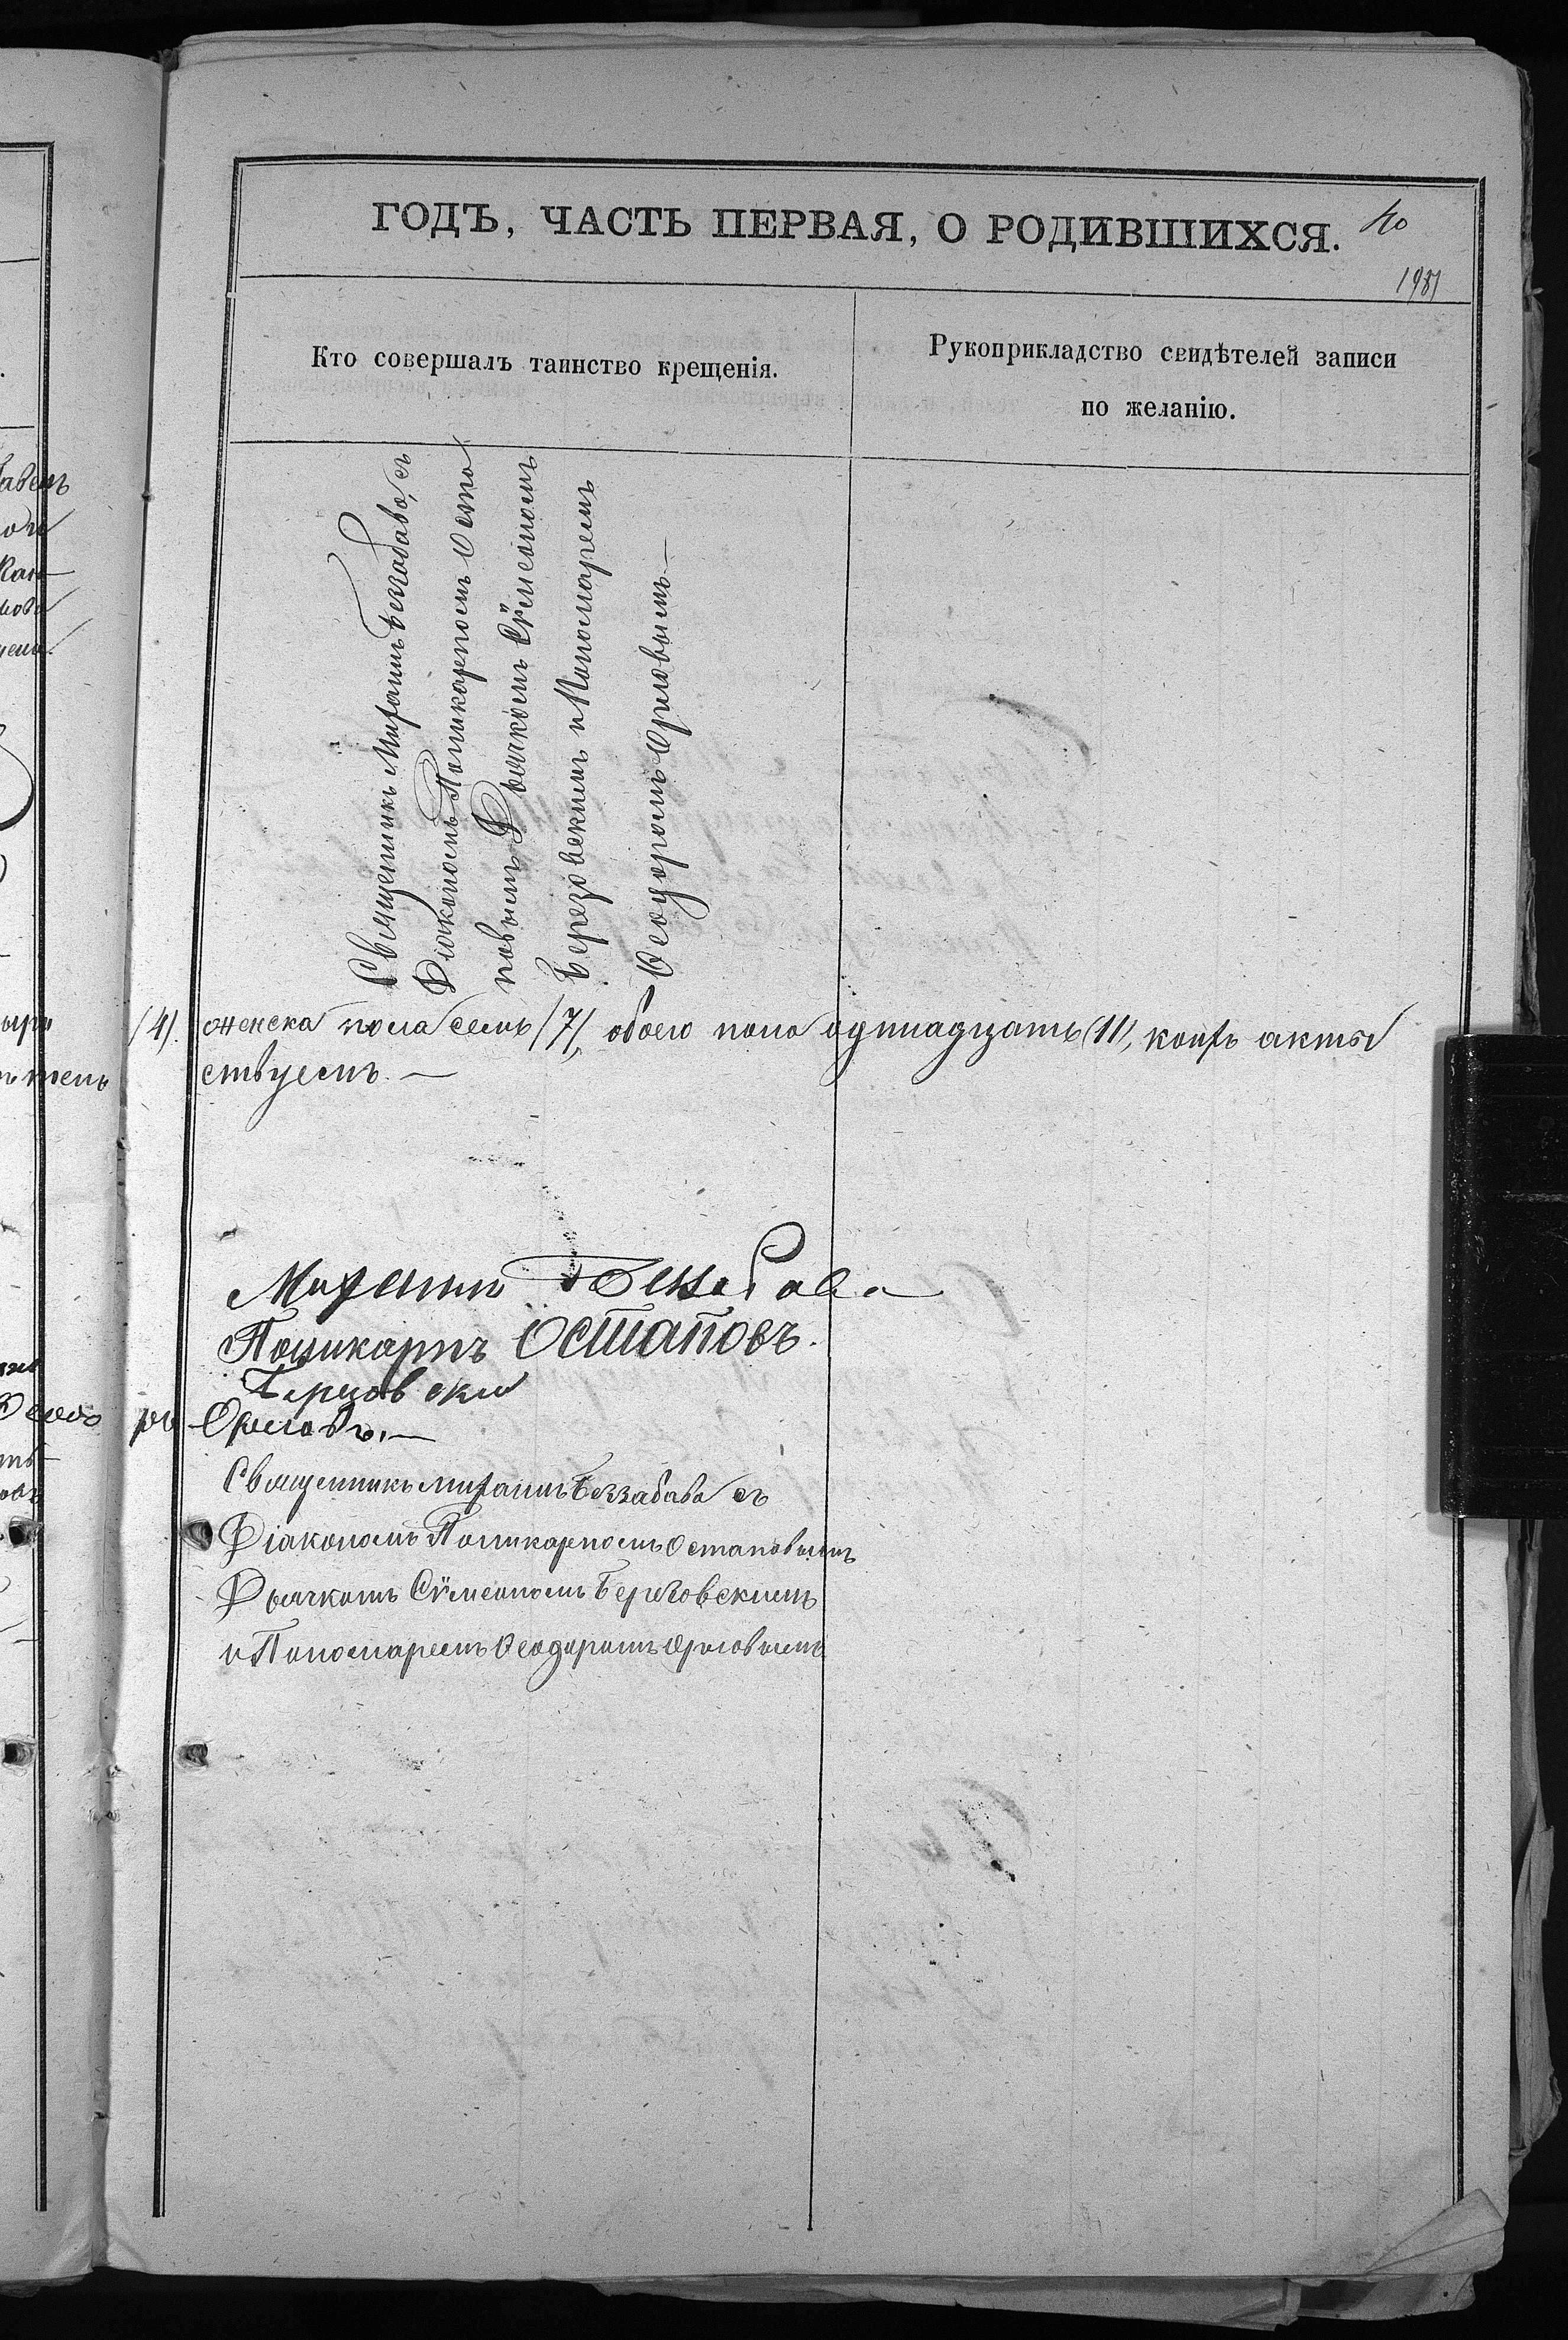 ГОДЪ, ЧАСТЬ ПЕРВАЯ, О РОДИВШИХСЯ.
Кто совершалъ таинство крещенія.
Рукоприкладство свидѣтелей записи
по желанію.
Священникъ Михаилъ Беззабава, съ
Діакономъ Поликарпомъ Оста
повымъ Дьячкомъ Сѵмеономъ
Березовскимъ и Пономаремъ
Ѳеодоромъ Орловымъ.—
/4/. женска пола семь /7/, обоего пола одинадцать (11), коихъ акты
ствуемъ.—
Михаилъ Беззабава
Поликарпъ Остаповъ.
Березовскій
Орловъ.—
Священникъ Михаилъ Беззабава съ
Діакономъ Поликарпомъ Остаповымъ
Дьячкомъ Сѵмеономъ Березовскимъ
и Пономаремъ Ѳеодоромъ Орловымъ